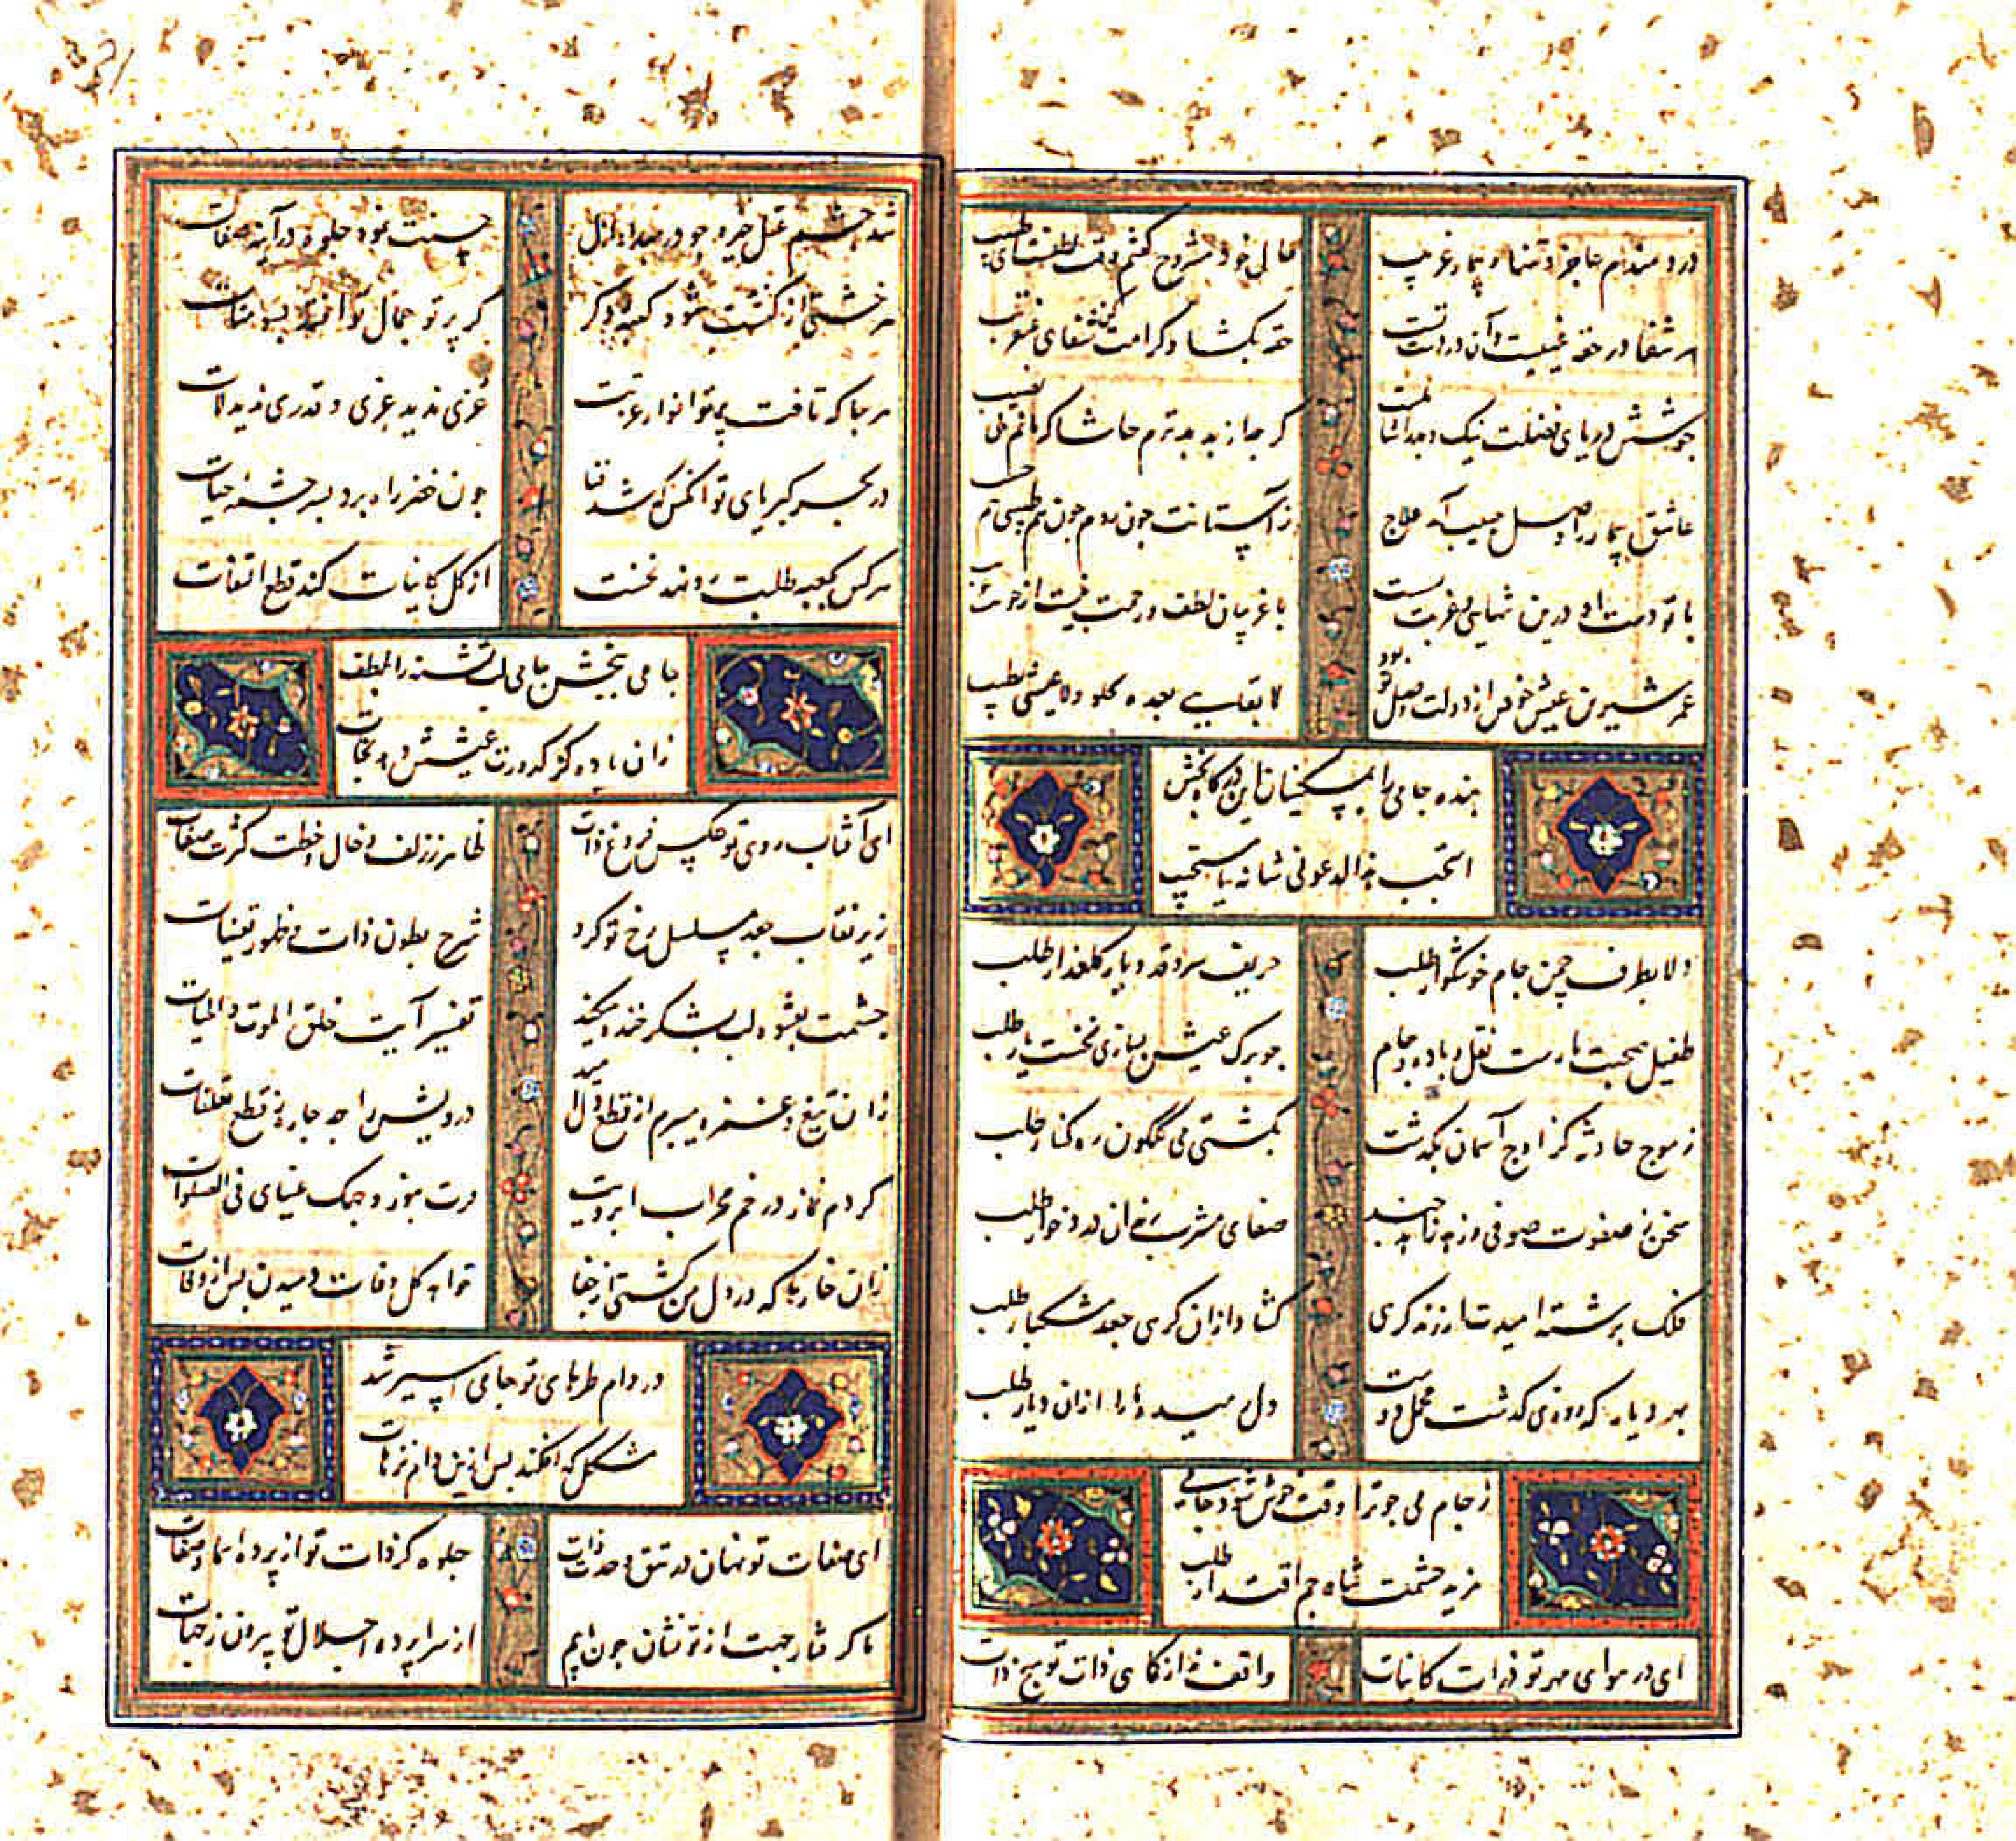 دردمندم عاجز او تنها و بیمار و غریب
حالی خود مشروح گفتم وقت لطفست ای طبیب
هر شفا در حقه غیبست و آن در دست تست
حقه بکشا و کرامت کن شفای عنقریب
جوشش دریای فضلت نیک و بد را شاملست
گرچه از بد بدترم حاشا که مانم بی نصیب
عاشق بیمار را وصل حبیب آمد علاج
ز آستانت چون روم چون هم طبیبی هم حبیب
با تو دست او درین تنهایی و غربت
با غریبان لطف و رحمت نیست از خویت غریب
عمر شیرین عیش خوش از دولت وصل تو بود
لا بقا لی بعده کلا و لا عیشی یطیب
بنده جامی را به مسکینان این درگاه بخش
استجب هذا الدعا فی شانه یا مستجیب
دلا بطرف چمن جام خوشگوار طلب
حریف سرو قد و یار گلعذار طلب
طفیل صحبت یارست نقل و باده و جام
چو برگ عیش بسازی نخست یار طلب
ز موج حادثه کز اوج آسمان بگذشت
بکشتی می گلگون ره کنار طلب
سخن ز صفوت صوفی و زهد زاهد چند
صفای مشرب رندان درد خوار طلب
فلک برشته امیدت ار زند گرهی
گشاد ازان گره جعد مشکبار طلب
بهر دیار که روزی گذشت محمل دوست
دل رمیده ما را ازان دیار طلب
ز جام می چو ترا وقت خوش شود جامی
مزید حشمت شاه جم اقتدار طلب
ای در هوای مهر تو ذرات کاینات
واقف نه از کماهی ذات تو هیچ ذات
شد چشم عقل خیره چو در مبداء ازل
حسنت نمود جلوه در آیینه صفات
هر خشتی از کنشت شود کعبه دگر
گر پرتو جمال تو افتد بسومنات
هر جا که تافت پرتو انوار عزتت
عزی ندید عزی و قدری ندید لات
در بحر کبریای تو آنکس که شد فنا
چون خضر راه برد بسرچشمه حیات
هر کس بکعبه طلبت رو نهد نخست
از کل کاینات کند قطع التفات
جامی ببخش جامی لب تشنه را بلطف
زان باده کز کدورت عیشش دهد نجات
ای آفتاب روی تو عکس فروغ ذات
ظاهر ز زلف و خال و خطت کثرت صفات
زیر نقاب جعد مسلسل رخ تو کرد
شرح بطون ذات و ظهور تعینات
چشمت بعشوه لب بشکر خنده میکند
تفسیر آیت خلق الموت و الحیات
زان تیغ غمزه میبرم از قطع دل امید
درویش را چه چاره ز قطع تعلقات
کردم نماز در خم محراب ابرویت
مرت بنور وجهک عینای فی الصلوات
زان خارها که در دل من کشتی از جفا
خواهد گل وفات دمیدن پس از وفات
در دام طره‌های تو جامی اسیر شد
مشکل که افکند پس ازین دام ترهات
ای صفات تو نهان در تتق وحدت ذات
جلوه گر ذات تو از پرده اسما و صفات
ما گرفتار جهت از تو نشان چون یابیم
ای سراپرده اجلال تو بیرون ز جهات